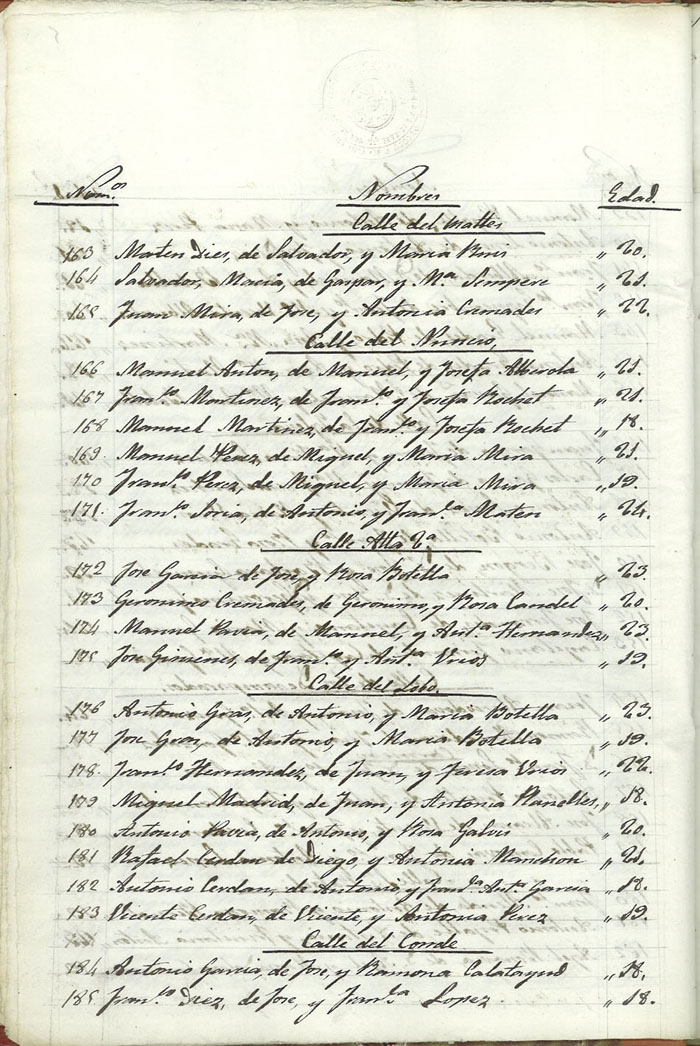 Núm.os Nombres Edad.
Calle del
163 Mateu Dies, de Salvador, y Maria Ruis „ 20.
164 Salvador, Macía, de Gaspar, y Ma Sempere „ 21.
165 Juan Mira, de Jose, y Antonia Cremades „ 22.
Calle del Nuncio,
166 Manuel Anton, de Manuel, y Josefa Alberola „ 21.
167 Franco Martinez, de Franco y Josefa Rochet „ 21.
168 Manuel Martinez, de Franco y Josefa Rochet „ 18.
169 Manuel Perez, de Miguel, y Maria Mira „ 21.
170 Franco Perez, de Miguel, y Maria Mira „ 19.
171. Franco Soria, de Antonio, y Franca Mateu „ 24.
Calle Alta 2a
172 Jose Garcia de Jose, y Rosa Botella „ 23.
173 Geronimo Cremades, de Geronimo, y Rosa Candel „ 20.
174 Manuel Pavia, de Manuel, y Anta Hernandez „ 23.
175 Jose Gimenes, de Franco y Anta Urios „ 19.
Calle del Lobo.
176 Antonio Gras, de Antonio, y Maria Botella „ 23.
177 Jose Gras, de Antonio, y Maria Botella „ 19.
178. Franco Hernandez, de Juan, y Teresa Urios „ 22.
179 Miguel Madrid, de Juan, y Antonia Planelles, „ 18.
180 Antonio Pavia, de Antonio, y Rosa Galvis „ 20.
181 Rafael Cerdan de Diego, y Antonia Manchon „ 21.
182 Antonio Cerdan, de Antonio, y Franca Anta Garcia „ 18.
183 Vicente Cerdan, de Vicente, y Antonia Perez „ 19.
Calle del Conde
184 Antonio Garcia, de Jose, y Ramona Calatayud „ 18.
185 Franco Diez, de Jose, y Franca Lopez. „ 18.